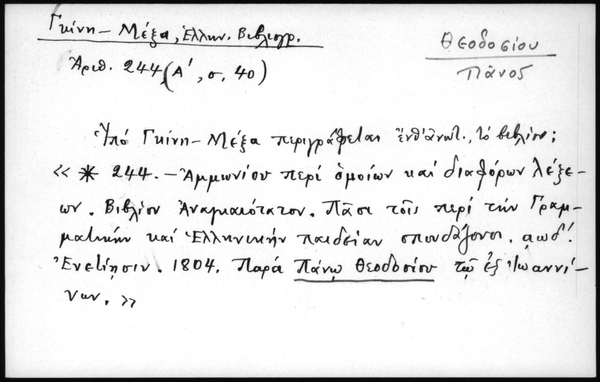 Γκίνη - Μέξα, Ἑλλην. Βιβλιογρ.
Θεοδοσίου
Ἀριθ. 244, (Α', σ. 40)
Πᾶνος
Ὑπό Γκίνη - Μέξα περιγράφεται ἔνθ' ἀνωτ., τό βιβλίον;
« * 244. - Ἀμμωνίου περί ὁμοίων καί διαφόρων λέξε-
ων. Βιβλίον Ἀναγκαιότατον. Πᾶσι τοῖς περί τήν Γραμ-
ματικήν καί Ἑλληνικήν παιδείαν σπουδάζουσι. αωδ'.
Ἐνετίῃσιν. 1804. Παρά Πάνῳ Θεοδοσίου τῷ ἐξ Ἰωαννί-
νων. »